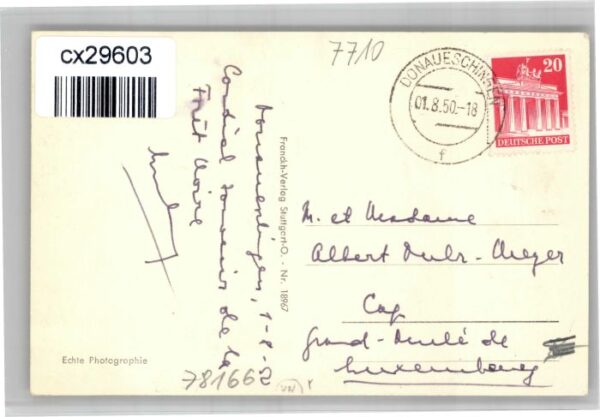 cx29603
7710
DONAUESCHINGEN
01.8.50.-18
f
20
DEUTSCHE POST
Donaueschingen, 1-8-
Cordial souvenir de la
Forêt Noire
Franckh-Verlag Stuttgart-O. - Nr. 18967
M. et Madame
Albert
Cap
Grand-Duché de
Luxembourg
Echte Photographie
781662